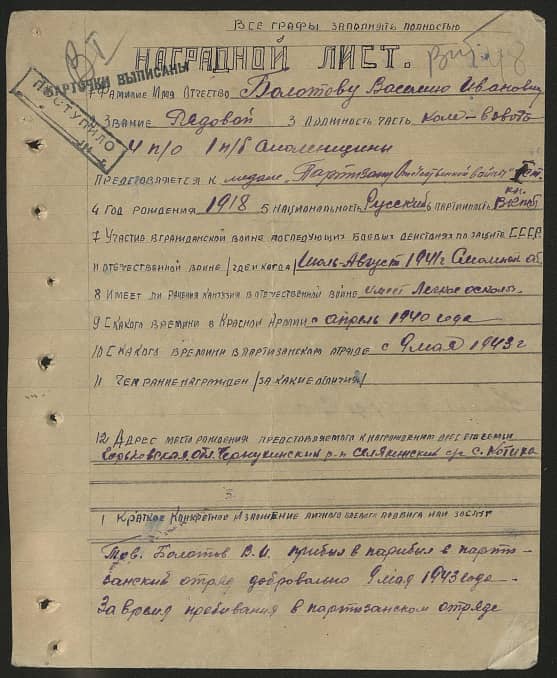 ВСЕ ГРАФЫ ЗАПОЛНЯТЬ ПОЛНОСТЬЮ
НАГРАДНОЙ ЛИСТ.
КАРТОЧКИ ВЫПИСАНЫ
ПОСТУПИЛО
1 ФАМИЛИЕ ИМЯ ОТЧЕСТВО Болотову Василию Иванович
2 ЗВАНИЕ Рядовой 3 ДОЛЖНОСТЬ ЧАСТЬ ком-взвода
4 п/о 1 п/б Смоленщины
ПРЕДСТАВЛЯЕТСЯ К медали „Партизану Отечественной войны" 1 ст.
4 ГОД РОЖДЕНИЯ 1918 5 НАЦИОНАЛЬНОСТЬ Русский 6 ПАРТИЙНОСТЬ кан. ВКПб
7 УЧАСТИЕ В ГРАЖДАНСКОЙ ВОЙНЕ ПОСЛЕДУЮЩИХ БОЕВЫХ ДЕЙСТВИЯХ ПО ЗАЩИТЕ СССР
И ОТЕЧЕСТВЕННОЙ ВОЙНЕ /ГДЕ И КОГДА/ Июль-Август 1941г Смоленской об.
8 ИМЕЕТ ЛИ РАНЕНИЯ КАНТУЗИЯ В ОТЕЧЕСТВЕННОЙ ВОЙНЕ имеет Легкое осколоч.
9 С КАКОГО ВРЕМИНИ В КРАСНОЙ АРМИИ с апрель 1940 года
10 С КАКОГО ВРЕМИНИ В ПАРТИЗАНСКОМ ОТРЯДЕ с 9 мая 1943 г
11 ЧЕМ РАНИЕ НАГРАЖДЕН /ЗА КАКИЕ ОТЛИЧИЯ/
12 АДРЕС МЕСТО РОЖДЕНИЯ ПРЕДСТАВЛЯЕМОГО К НАГРАЖДЕНИЮ АДРЕС ЕГО СЕМЬИ
Горьковская обл. Чернухинский р-н с. Котиха
1 КРАТКОЕ КОНКРЕТНОЕ ИЗЛОЖЕНИЕ ЛИЧНОГО БОЕВОГО ПОДВИГА ИЛИ ЗАСЛУГ
Тов. Болотов В.И. прибыл в парибыл в парти-
занский отряд добровально 9 мая 1943 года -
За время пребивания в партизанском отряде